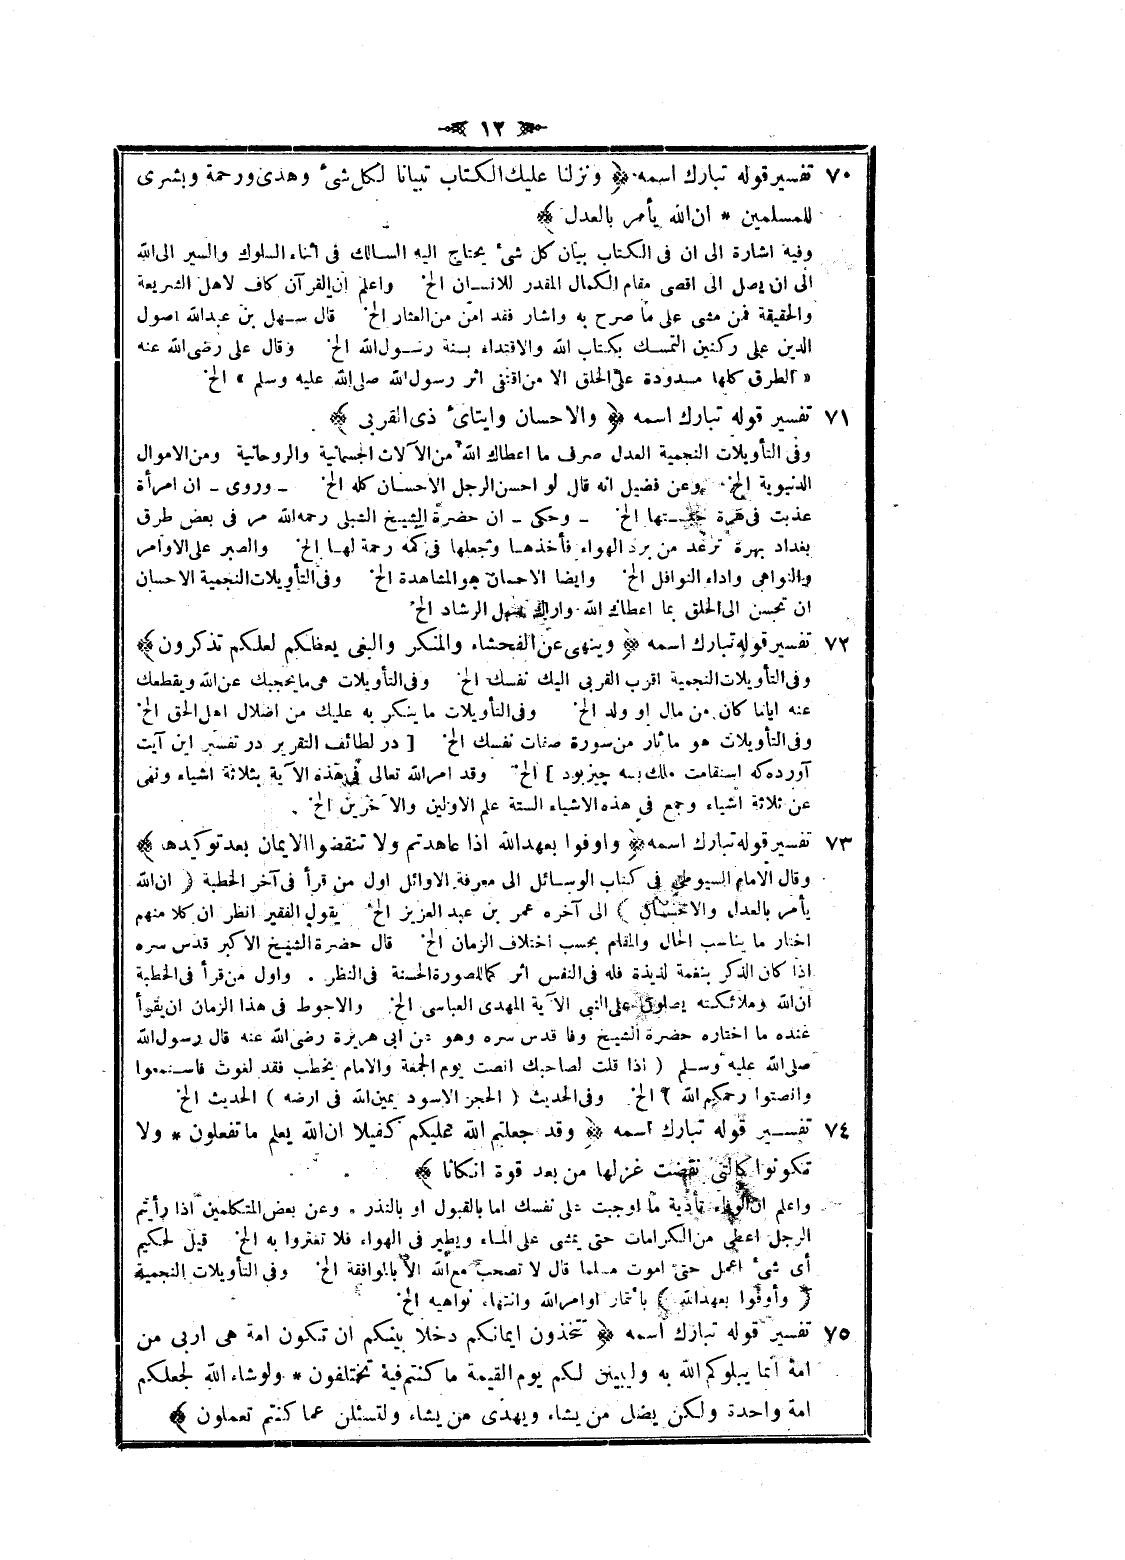 ١٢
٧٠ تفسير قوله تبارك اسمه ﴿ ونزلنا عليك الكتاب تبيانا لكل شئ وهدى ورحمة وبشرى
للمسلمين * ان الله يأمر بالعدل ﴾
وفيه اشارة الى ان فى الكتاب بيان كل شئ يحتاج اليه السالك فى اثناء السلوك والسير الى الله
الى ان يصل الى اقصى مقام الكمال المقدر للانسان الخ واعلم ان القرآن كاف لاهل الشريعة
والحقيقة فمن مشى على ما صرح به واشار فقد امن من العثار الخ قال سهل بن عبدالله اصول
الدين على ركنين التمسك بكتاب الله والاقتداء بسنة رسول الله الخ وقال على رضى الله عنه
« الطرق كلها مسدودة على الخلق الا من اقتفى اثر رسول الله صلى الله عليه وسلم » الخ
٧١ تفسير قوله تبارك اسمه ﴿ والاحسان وايتائ ذى القربى ﴾
وفى التأويلات النجمية العدل صرف ما اعطاك الله من الآلات الجسمانية والروحانية ومن الاموال
الدنيوية الخ وعن فضيل انه قال لو احسن الرجل الاحسان كله الخ ـ وروى ـ ان امرأة
عذبت فى هرة حبستها الخ ـ وحكى ـ ان حضرة الشيخ الشبلى رحمه الله مر فى بعض طرق
بغداد بهرة ترعد من برد الهواء فأخذها وجعلها فى كمه رحمة لها الخ والصبر على الاوامر
والنواهى واداء النوافل الخ وايضا الاحسان هو المشاهدة الخ وفى التأويلات النجمية الاحسان
ان تحسن الى الخلق بما اعطاك الله واراك سبيل الرشاد الخ
٧٢ تفسير قوله تبارك اسمه ﴿ وينهى عن الفحشاء والمنكر والبغى يعظكم لعلكم تذكرون ﴾
وفى التأويلات النجمية اقرب القربى اليك نفسك الخ وفى التأويلات هى ما يحجبك عن الله ويقطعك
عنه ايا ما كان من مال او ولد الخ وفى التأويلات ما ينكر به عليك من اضلال اهل الحق الخ
وفى التأويلات هو ما ثار من سورة صفات نفسك الخ [ در لطائف التقرير در تفسير اين آيت
آورده كه استقامت ملك بسه چيز بود ] الخ وقد امر الله تعالى فى هذه الآية بثلاثة اشياء ونهى
عن ثلاثة اشياء وجمع فى هذه الاشياء الستة علم الاولين والآخرين الخ .
٧٣ تفسير قوله تبارك اسمه ﴿ واوفوا بعهد الله اذا عاهدتم ولا تنقضوا الايمان بعد توكيدها ﴾
وقال الامام السيوطى فى كتاب الوسائل الى معرفة الاوائل اول من قرأ فى آخر الخطبة ( ان الله
يأمر بالعدل والاحسان ) الى آخره عمر بن عبد العزيز الخ يقول الفقير انظر ان كلا منهم
اختار ما يناسب الحال والمقام بحسب اختلاف الزمان الخ قال حضرة الشيخ الاكبر قدس سره
اذا كان الذكر بنغمة لذيذة فله فى النفس اثر كما للصورة الحسنة فى النظر . واول من قرأ فى الخطبة
ان الله وملائكته يصلون على النبى الآية المهدى العباسى الخ والاحوط فى هذا الزمان ان يقرأ
عنده ما اختاره حضرة الشيخ وفا قدس سره وهو عن ابى هريرة رضى الله عنه قال رسول الله
صلى الله عليه وسلم ( اذا قلت لصاحبك انصت يوم الجمعة والامام يخطب فقد لغوت فاستمعوا
وانصتوا رحمكم الله ) الخ وفى الحديث ( الحجر الاسود يمين الله فى ارضه ) الحديث الخ
٧٤ تفسير قوله تبارك اسمه ﴿ وقد جعلتم الله عليكم كفيلا ان الله يعلم ما تفعلون * ولا
تكونوا كالتى نقضت غزلها من بعد قوة انكاثا ﴾
واعلم ان الوفاء تأدية ما اوجبت على نفسك اما بالقبول او بالنذر . وعن بعض المتكلمين اذا رأيتم
الرجل اعطى من الكرامات حتى يمشى على الماء ويطير فى الهواء فلا تغتروا به الخ قيل لحكيم
أى شئ اعمل حتى اموت مسلما قال لا تصحب مع الله الا بالموافقة الخ وفى التأويلات النجمية
( وأوفوا بعهد الله ) بائتمار اوامر الله وانتهاء نواهيه الخ
٧٥ تفسير قوله تبارك اسمه ﴿ تتخذون ايمانكم دخلا بينكم ان تكون امة هى اربى من
امة انما يبلوكم الله به وليبينن لكم يوم القيمة ما كنتم فيه تختلفون * ولو شاء الله لجعلكم
امة واحدة ولكن يضل من يشاء ويهدى من يشاء ولتسئلن عما كنتم تعملون ﴾